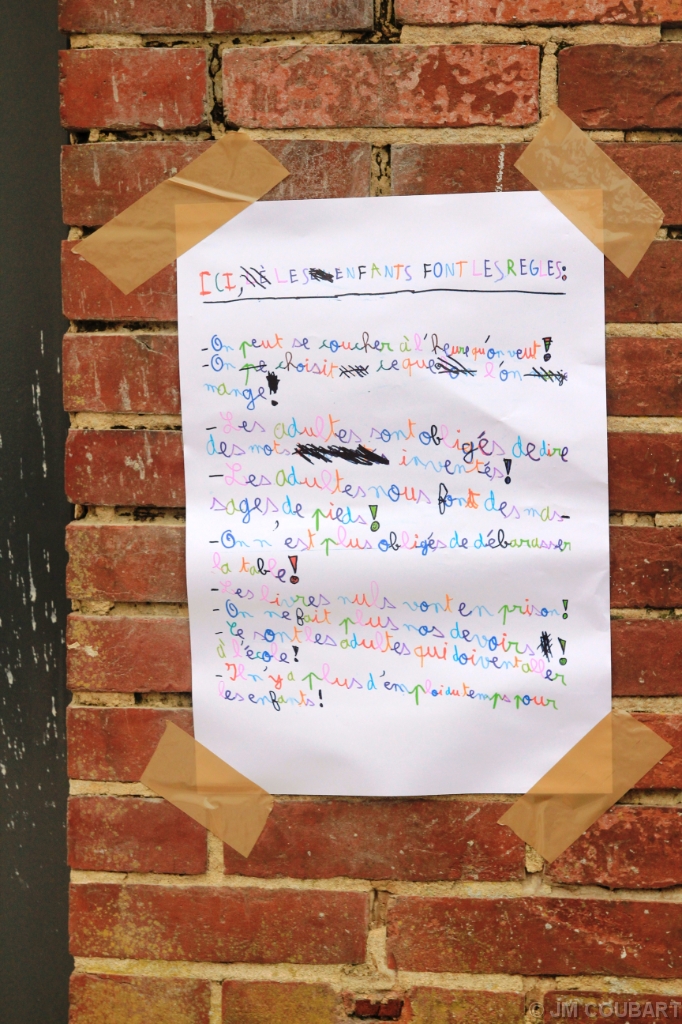 ICI, LES ENFANTS FONT LES REGLES:
-On peut se coucher à l'heure qu'on veut!
-On choisit ce que l'on
mange!
-Les adultes sont obligés de dire
des mots inventés!
-Les adultes nous font des mas-
sages de pieds!
-On n'est plus obligés de débarasser
la table!
-Les livres nuls vont en prison!
-On ne fait plus nos devoirs!
-Ce sont les adultes qui doivent aller
à l'école!
-Il n y a plus d'emploi du temps pour
les enfants!
© JM COUBART